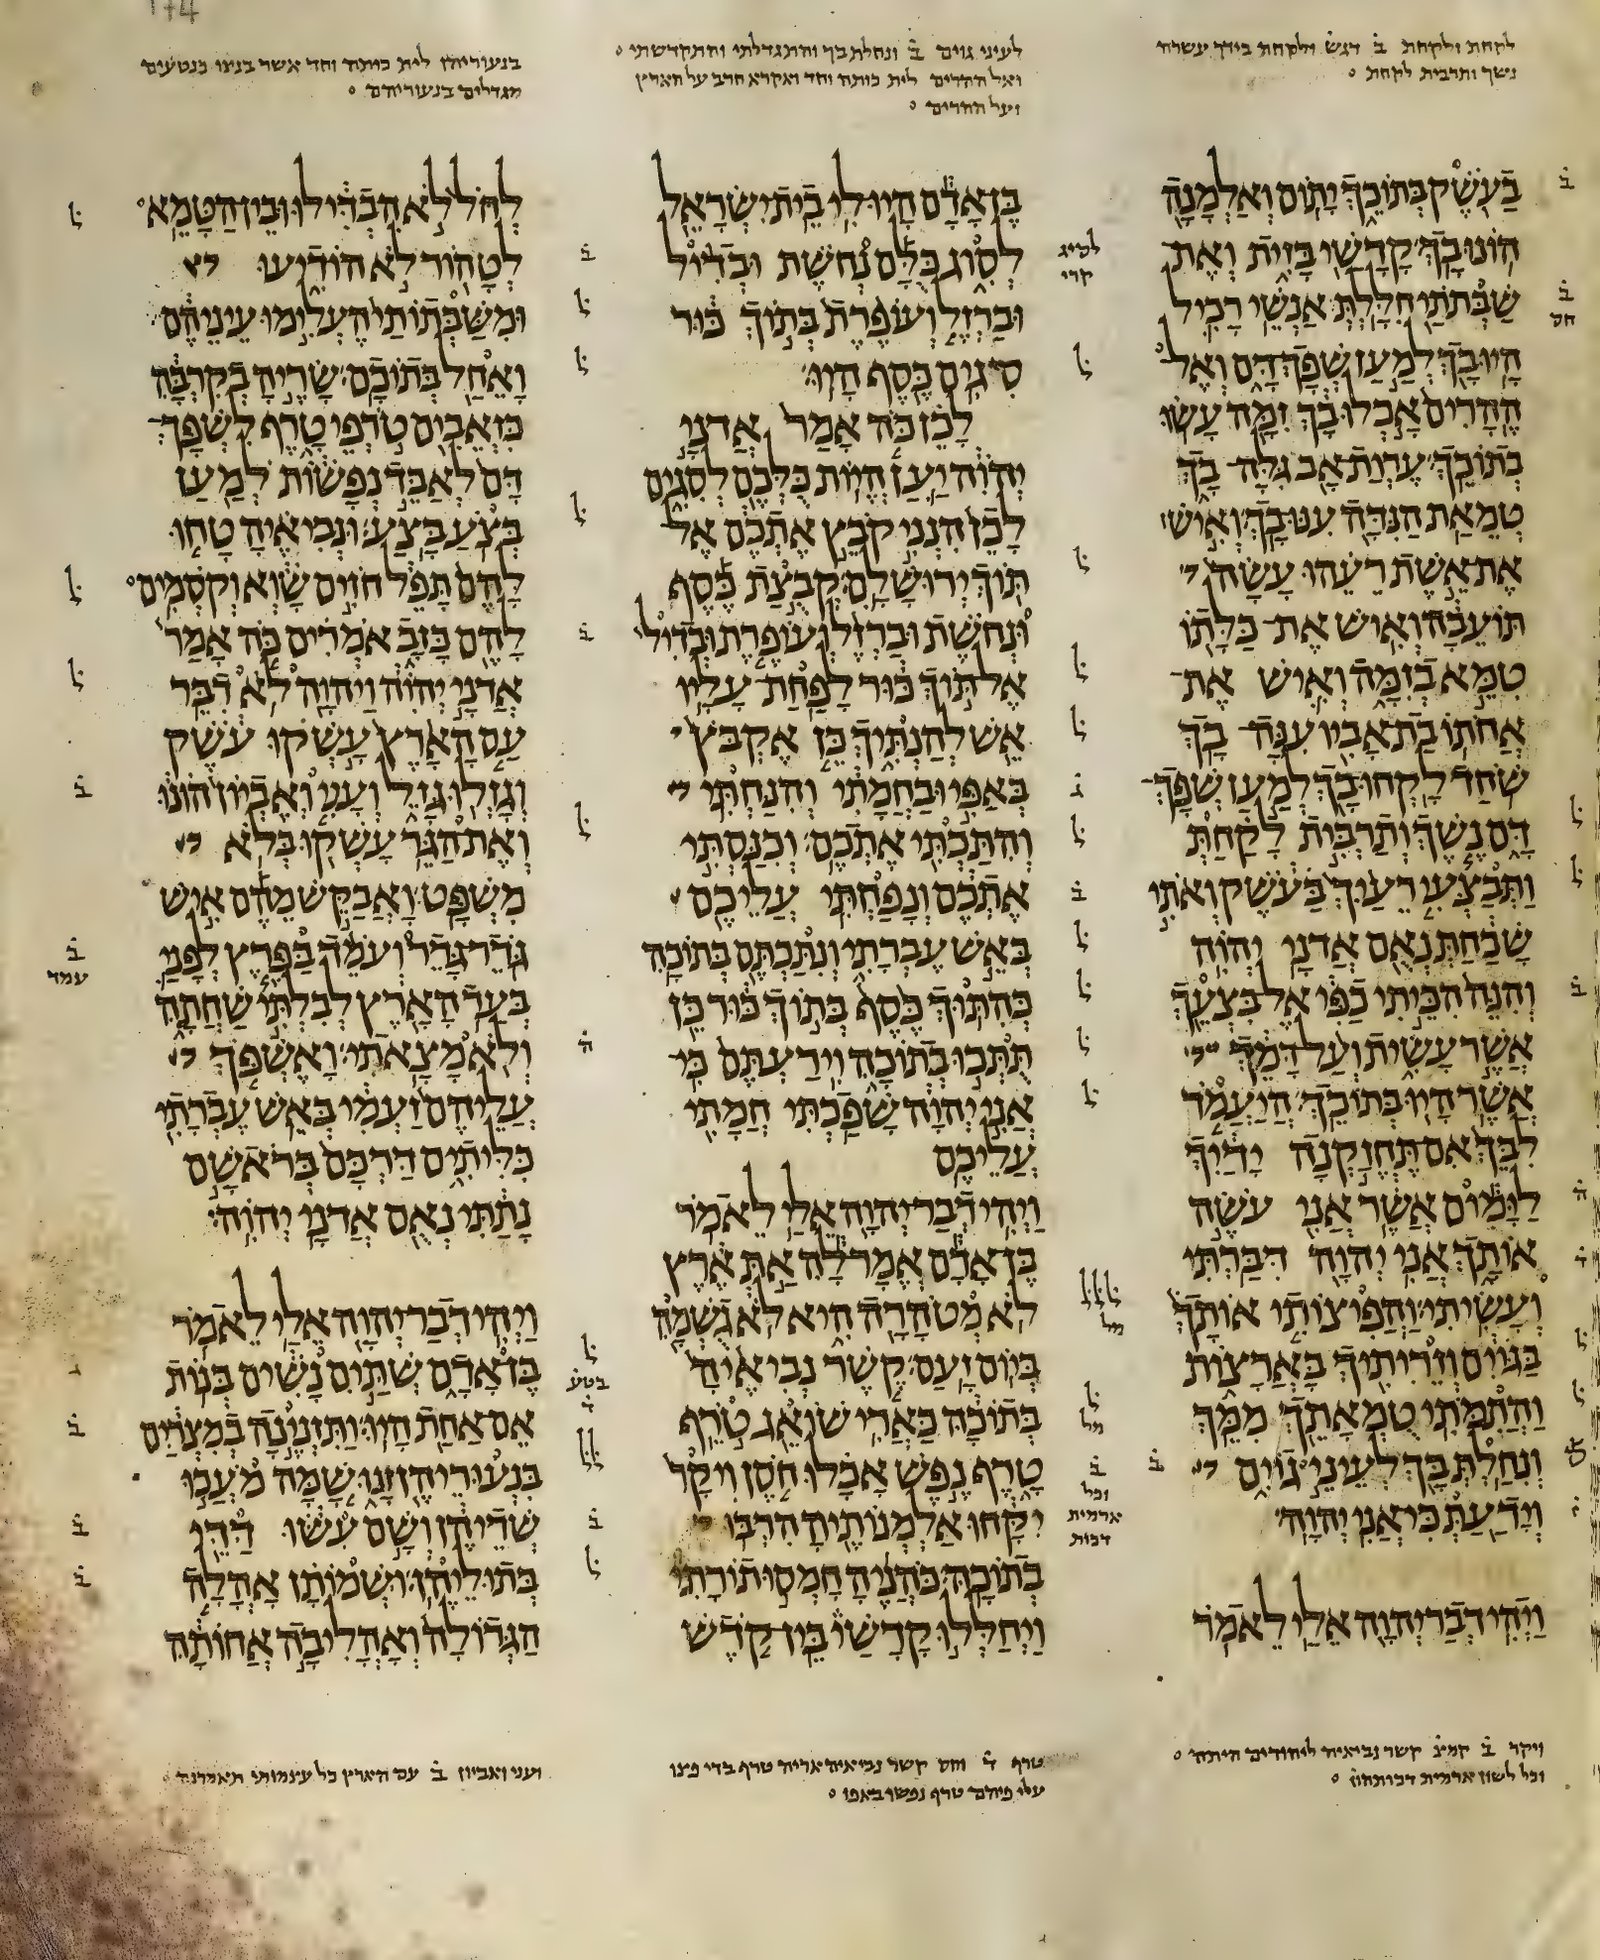 לקחת ולקחת ב דגש ולקחת בידך עשרה
נשך ותרבית לקחת
לעיני גוים ב ונחלת בך והתגדלתי והתקדשתי
ואל ההרים לית כותה וחד ואקרא חרב על הארץ
ועל ההרים
בנעוריהן לית כותה וחד אשר בנינו כנטעים
מגדלים בנעוריהם
בעשק בתוכך יתום ואלמנה
הונו בך קדשי בזית ואת
שבתתי חללת אנשי רכיל
היו בך למען שפך דם ואל
ההרים אכלו בך זמה עשו
בתוכך ערות אב גלה בך
טמאת הנדה ענו בך ואיש
את אשת רעהו עשה
תועבה ואיש את כלתו
טמא בזמה ואיש את
אחתו בת אביו ענה בך
שחד לקחו בך למען שפך
דם נשך ותרבית לקחת
ותבצעי רעיך בעשק ואתי
שכחת נאם אדני יהוה
והנה הכיתי כפי אל בצעך
אשר עשית ועל דמך
אשר היו בתוכך היעמד
לבך אם תחזקנה ידיך
לימים אשר אני עשה
אותך אני יהוה דברתי
ועשיתי והפיצותי אותך
בגוים וזריתיך בארצות
והתמתי טמאתך ממך
ונחלת בך לעיני גוים
וידעת כי אני יהוה
ויהי דבר יהוה אלי לאמר
בן אדם היו לי בית ישראל
לסוג כלם נחשת ובדיל
וברזל ועופרת בתוך כור
סיגים כסף היו
לכן כה אמר אדני
יהוה יען היות כלכם לסגים
לכן הנני קבץ אתכם אל
תוך ירושלם קבצת כסף
ונחשת וברזל ועופרת ובדיל
אל תוך כור לפחת עליו
אש להנתיך כן אקבץ
באפי ובחמתי והנחתי
והתכתי אתכם וכנסתי
אתכם ונפחתי עליכם
באש עברתי ונתכתם בתוכה
כהתוך כסף בתוך כור כן
תתכו בתוכה וידעתם כי
אני יהוה שפכתי חמתי
עליכם
ויהי דבר יהוה אלי לאמר
בן אדם אמר לה את ארץ
לא מטהרה היא לא גשמה
ביום זעם קשר נביאיה
בתוכה כארי שואג טרף
טרף נפש אכלו חסן ויקר
יקחו אלמנותיה הרבו
בתוכה כהניה חמסו תורתי
ויחללו קדשי בין קדש
לחל לא הבדילו ובין הטמא
לטהור לא הודיעו
ומשבתותי העלימו עיניהם
ואחל בתוכם שריה בקרבה
כזאבים טרפי טרף לשפך
דם לאבד נפשות למען
בצע בצע ונביאיה טחו
להם תפל חזים שוא וקסמים
להם כזב אמרים כה אמר
אדני יהוה ויהוה לא דבר
עם הארץ עשקו עשק
וגזלו גזל ועני ואביון הונו
ואת הגר עשקו בלא
משפט ואבקש מהם איש
גדר גדר ועמד בפרץ לפני
בעד הארץ לבלתי שחתה
ולא מצאתי ואשפך
עליהם זעמי באש עברתי
כליתים דרכם בראשם
נתתי נאם אדני יהוה
ויהי דבר יהוה אלי לאמר
בן אדם שתים נשים בנות
אם אחת היו ותזנינה במצרים
בנעוריהן זנו שמה מעכו
שדיהן ושם עשו דדי
בתוליהן ושמותן אהלה
הגדולה ואהליבה אחותה
ויקר ב קמיצ קשר נביאיה ליהודים היתה
וכל לשון ארמית דכותהון
טרף ד וחס קשר נביאיה אריה טרף בדי פיגו
עלי פיהם טרף נפשו באפו
ועני ואביון ב עם הארץ כל עצמותי תאמרנה